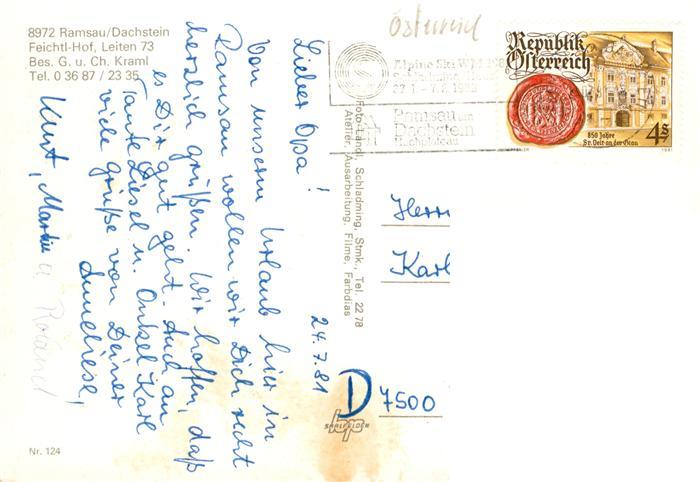 8972 Ramsau/Dachstein
Feichtl-Hof, Leiten 73
Bes. G. u. Ch. Kraml
Tel. 0 36 87 / 23 35
Lieber Opa!
24.7.81
Von unserm Urlaub hier in
Ramsau wollen wir Dich recht
herzlich grüßen. Wir hoffen, daß
es Dir gut geht. Auch an
Tante Liesel u. Onkel Karl
viele Grüße von Deiner
Anneliese,
Kurt, Martin u Roland
Nr. 124
Foto Landl, Schladming, Stmk., Tel. 22 78
Atelier, Ausarbeitung, Filme, Farbdias
Österreich
Alpine Ski WM 1982
Schladming
27.1.-7.2.1982
Ramsau am
Dachstein
Hochplateau
Republik
Österreich
850 Jahre
St. Veit an der Glan
4 S
1981
Herrn
Karl
D 7500
hp
SAALFELDEN